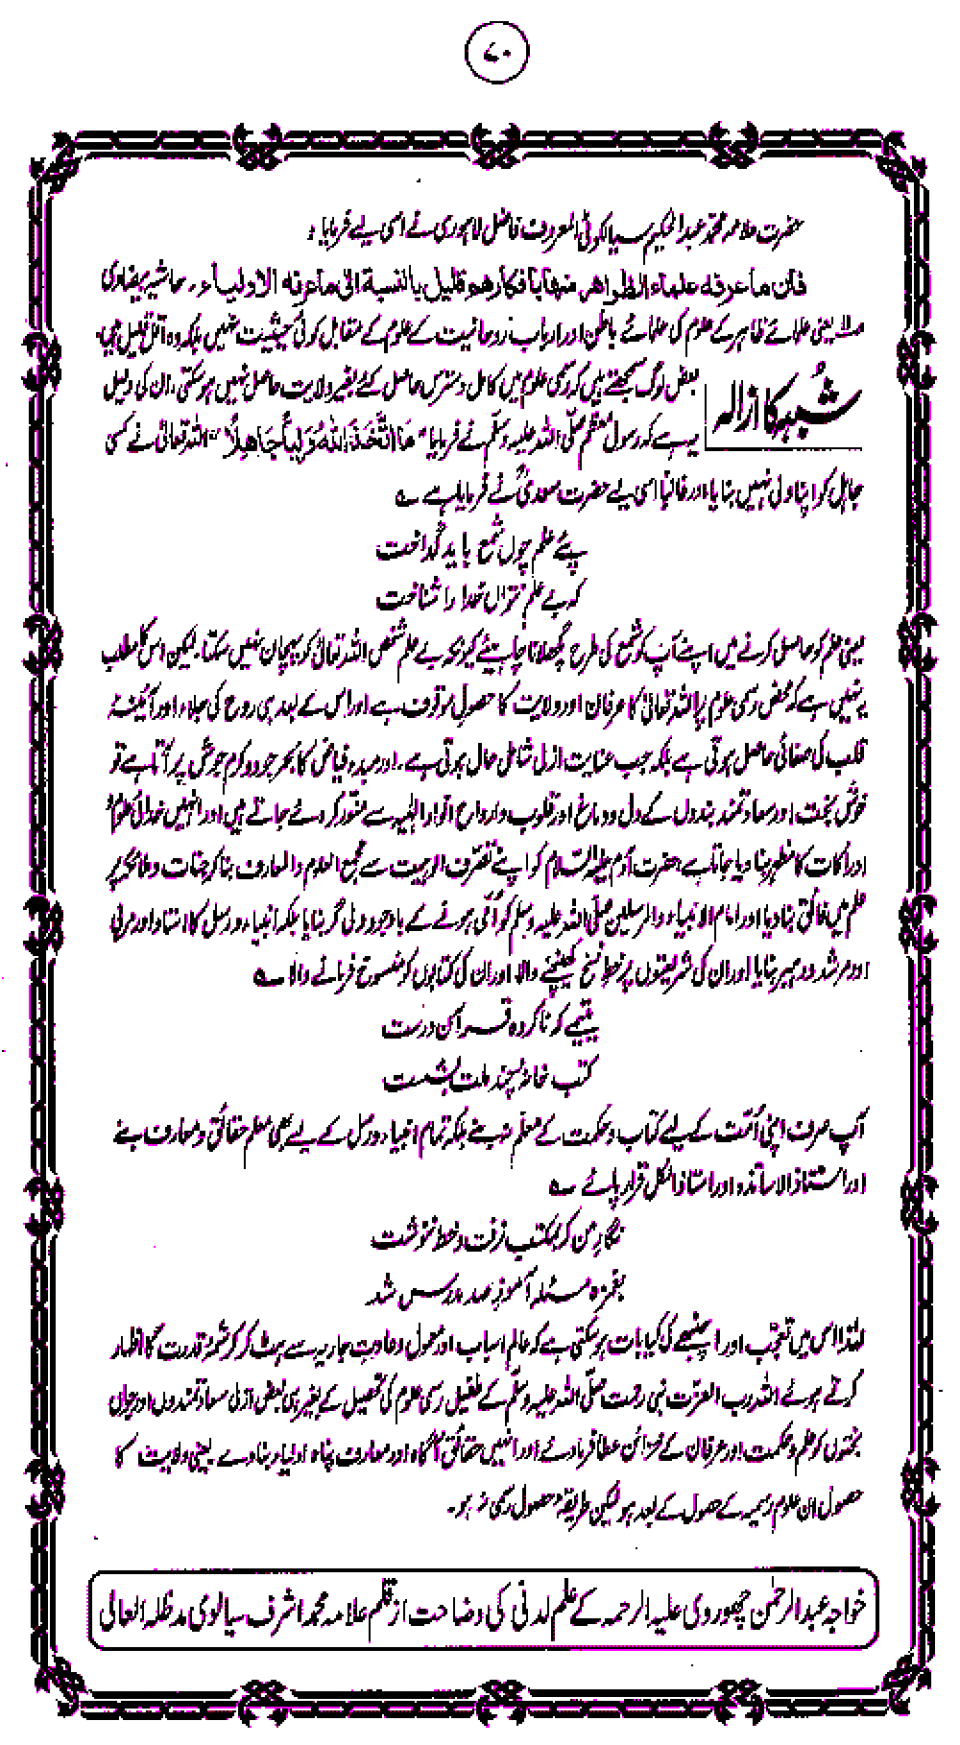 ۷۰
حضرت علامہ محمد عبدالحکیم سیالکوٹی المعروف فاضل لاہوری نے اسی لیے فرمایا:
فان ما عرفه علماء الظواهر منها بافکارهم قلیل بالنسبة الی ما عرفه الاولیاء۔ حاشیہ بیضاوی
یعنی علمائے ظاہر کے علوم کی علمائے باطن اور ارباب روحانیت کے علوم کے مقابل کوئی حیثیت نہیں بلکہ وہ اقل قلیل ہیں۔
شُبہ کا ازالہ
بعض لوگ سمجھتے ہیں کہ رسمی علوم میں کامل دسترس حاصل کئے بغیر ولایت حاصل نہیں ہو سکتی۔ ان کی دلیل
یہ ہے کہ رسول معظم صلّی اللہ علیہ وسلّم نے فرمایا "مَا اتَّخَذَ اللّٰهُ وَلِیًّا جَاهِلًا" اللہ تعالیٰ نے کسی
جاہل کو اپنا ولی نہیں بنایا اور غالباً اسی لیے حضرت سعدیؒ نے فرمایا ہے ؎
پئے علم چوں شمع باید گداخت
کہ بے علم نتواں خدا را شناخت
یعنی علم کو حاصل کرنے میں اپنے آپ کو شمع کی طرح پگھلانا چاہئے کیونکہ بے علم شخص اللہ تعالیٰ کو پہچان نہیں سکتا۔ لیکن اس کا مطلب
یہ نہیں ہے کہ محض رسمی علوم پر اللہ تعالیٰ کا عرفان اور ولایت کا حصول موقوف ہے اور اس کے بعد ہی روح کی جلاء اور آئینۂ
قلب کی صفائی حاصل ہوتی ہے بلکہ جب عنایت ازلی شامل حال ہوتی ہے۔ اور مبدء فیاض کا بحر جود و کرم جوش پر آتا ہے تو
خوش بخت اور سعادتمند بندوں کے دل و دماغ اور قلوب و ارواح انوار الٰہیہ سے منور کر دئے جاتے ہیں اور انہیں خدائی علوم
اور ادراکات کا مظہر بنا دیا جاتا ہے حضرت آدم علیہ السّلام کو اپنے تصرّف الوہیت سے مجمع العلوم والمعارف بنا کر جنات و ملائکہ پر
علم میں فائق بنا دیا اور امام الانبیاء والمرسلین صلّی اللہ علیہ وسلم کو اُمّی ہونے کے باوجود بنایا بلکہ انبیاء و رسل کا استاد اور مربی
اور مرشد و رہبر بنایا اور ان کی شریعتوں پر خط نسخ کھینچنے والا اور ان کی کتابوں کو منسوخ فرمانے والا ؎
یتیمے کہ ناکردہ قرآن درست
کتب خانۂ چند ملت بشست
آپ صرف اپنی اُمّت کے لیے کتاب و حکمت کے معلّم نہ بنے بلکہ تمام انبیاء و رسل کے لیے بھی معلم حقائق و معارف بنے
اور استاذ الاساتذہ اور استاذ الکل قرار پائے ؎
نگارِ من کہ بمکتب نرفت و خط ننوشت
بغمزہ مسئلہ آموز صد مدرس شد
لہٰذا اس میں تعجّب اور اچنبھے کی کیا بات ہو سکتی ہے کہ عالم اسباب اور معمول و عادت جاریہ سے ہٹ کر کرشمۂ قدرت کا اظہار
کرتے ہوئے اللہ رب العزت نبی رحمت صلّی اللہ علیہ وسلّم کے طفیل رسمی علوم کی تحصیل کے بغیر ہی بعض ازلی سعادتمندوں اور جواں
بختوں کو علم و حکمت اور عرفان کے خزائن عطا فرمادے اور انہیں حقائق آگاہ اور معارف پناہ اولیاء بنا دے یعنی ولایت کا
حصول ان علوم رسمیہ کے حصول کے بعد ہو لیکن طریقۂ حصول رسمی نہ ہو۔
خواجہ عبدالرحمٰن چھوروی علیہ الرحمہ کے علم لدنی کی وضاحت از قلم علامہ محمد اشرف سیالوی مدظلہ العالی